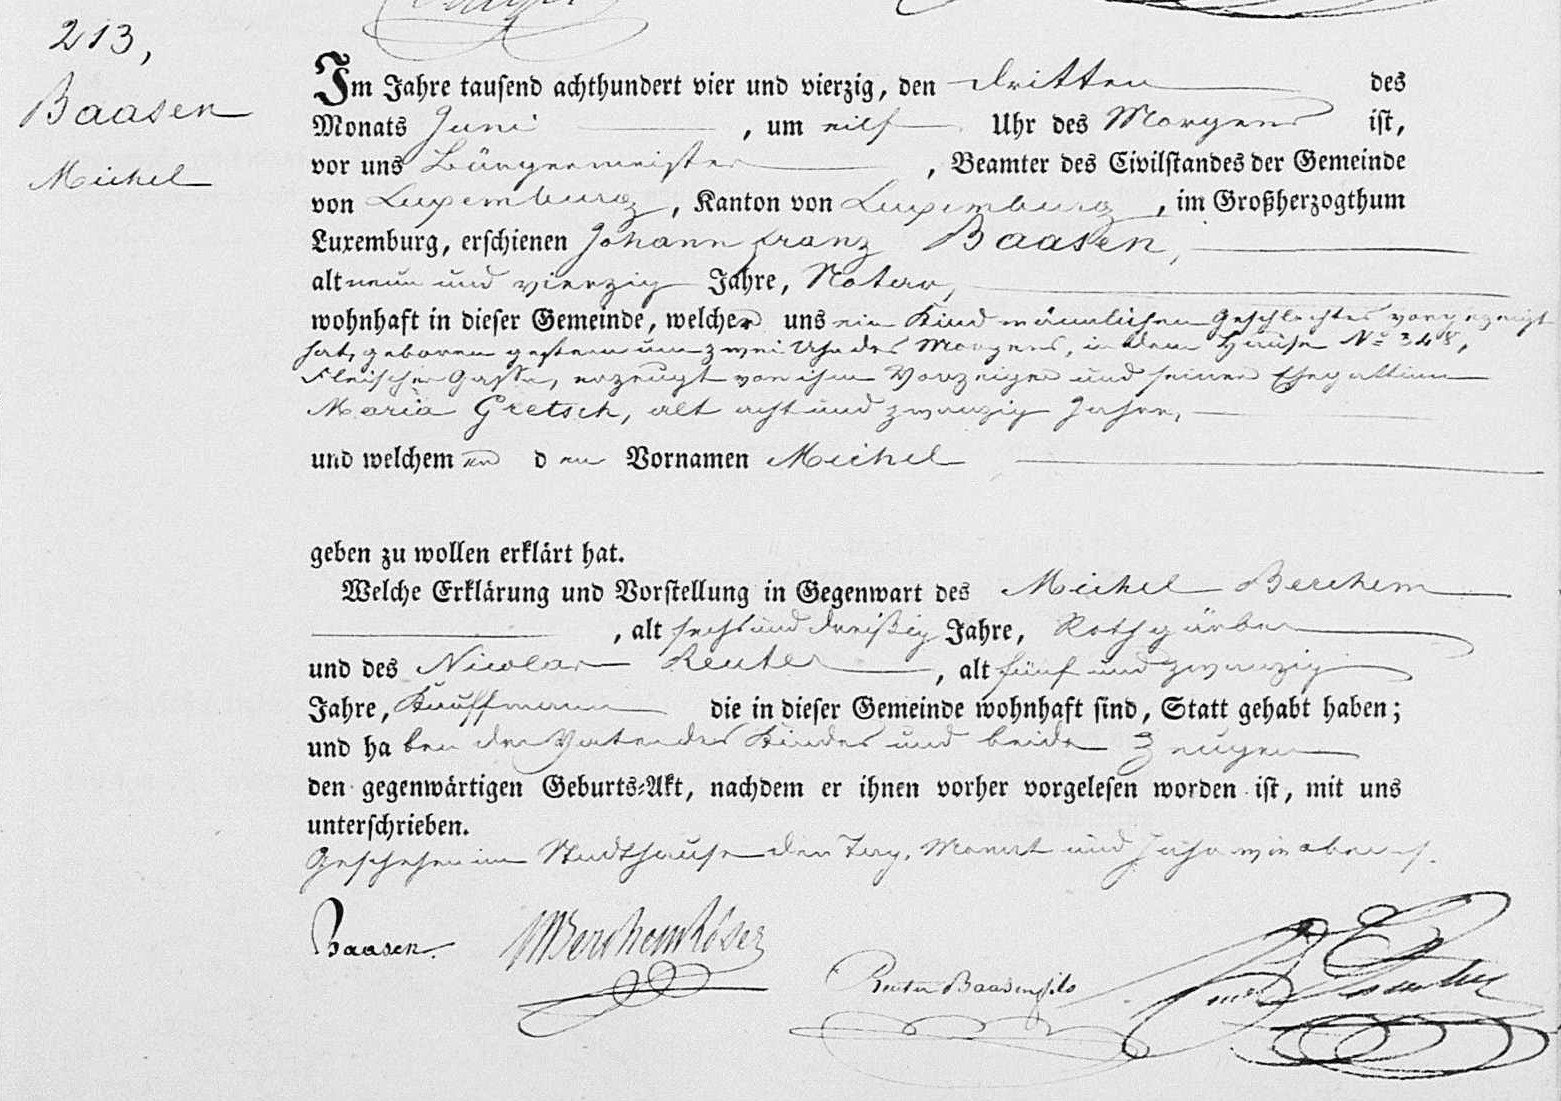 213,
Baasen
Michel
Im Jahre tausend achthundert vier und vierzig, den dritten des
Monats Juni , um eilf Uhr des Morgens ist,
vor uns Bürgermeister , Beamter des Civilstandes der Gemeinde
von Luxemburg , Kanton von Luxemburg , im Großherzogthum
Luxemburg, erschienen Johann Franz Baasen,
alt neun und vierzig Jahre, Notar,
wohnhaft in dieser Gemeinde, welcher uns ein Kind männlichen Geschlechtes vorgezeigt
hat, geboren gestern um zwei Uhr des Morgens, in dem Hause No 348,
Fleischer Gasse, erzeugt von ihm Vorzeiger und seiner Ehegattinn
Maria Gretsch, alt acht und zwanzig Jahre,
und welchem er den Vornamen Michel
geben zu wollen erklärt hat.
Welche Erklärung und Vorstellung in Gegenwart des Michel Berchem
, alt sechs und dreißig Jahre, Rothgärber
und des Nicolas Reuter , alt fünf und zwanzig
Jahre, Kauffmann die in dieser Gemeinde wohnhaft sind, Statt gehabt haben;
und haben der Vater des Kindes und beide Zeugen
den gegenwärtigen Geburts-Akt, nachdem er ihnen vorher vorgelesen worden ist, mit uns
unterschrieben.
Geschehen im Stadthause den Tag, Monat und Jahr wie oben
Baasen.
MBerchem Röser
Reuter Baasen fils